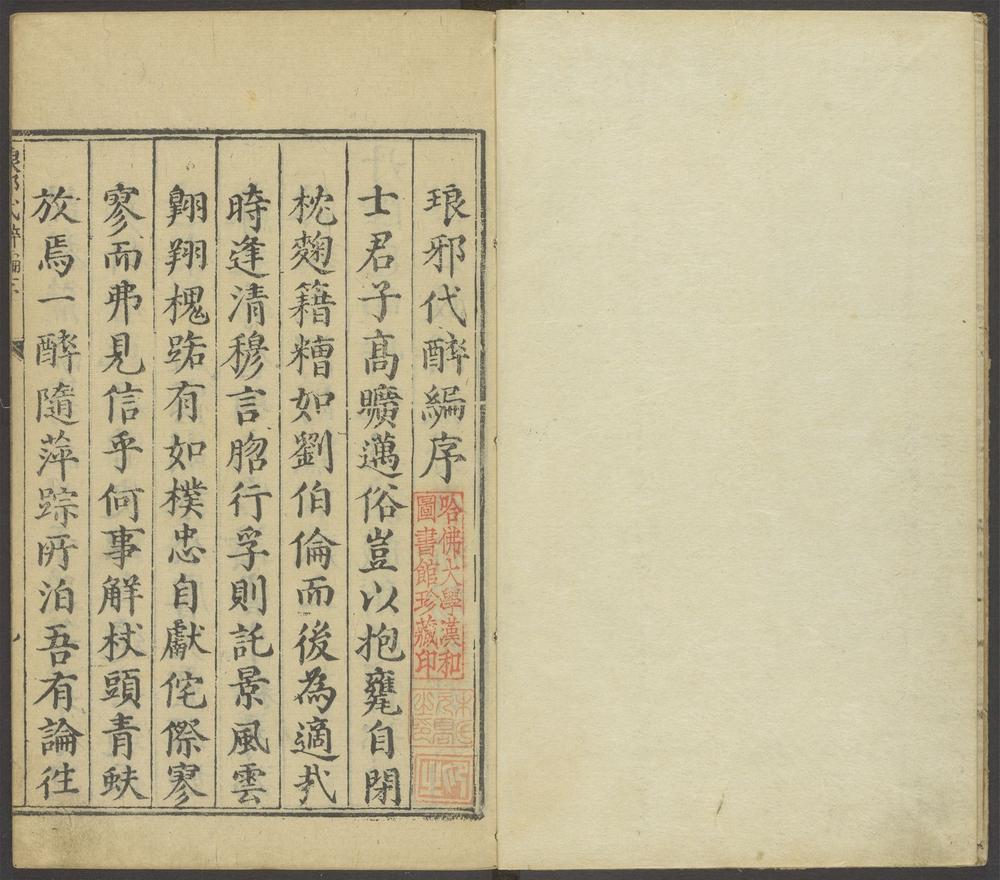 琅邪代醉編序
哈佛大學漢和
圖書館珍藏印
士君子髙曠邁俗豈以抱甕自閉
枕麴籍糟如劉伯倫而後為適㢤
時逢清穆言脗行孚則託景風雲
翺翔槐路有如樸忠自獻侘傺寥
寥而弗見信乎何事解杖頭青蚨
放焉一醉隨萍踪所泊吾有論徃